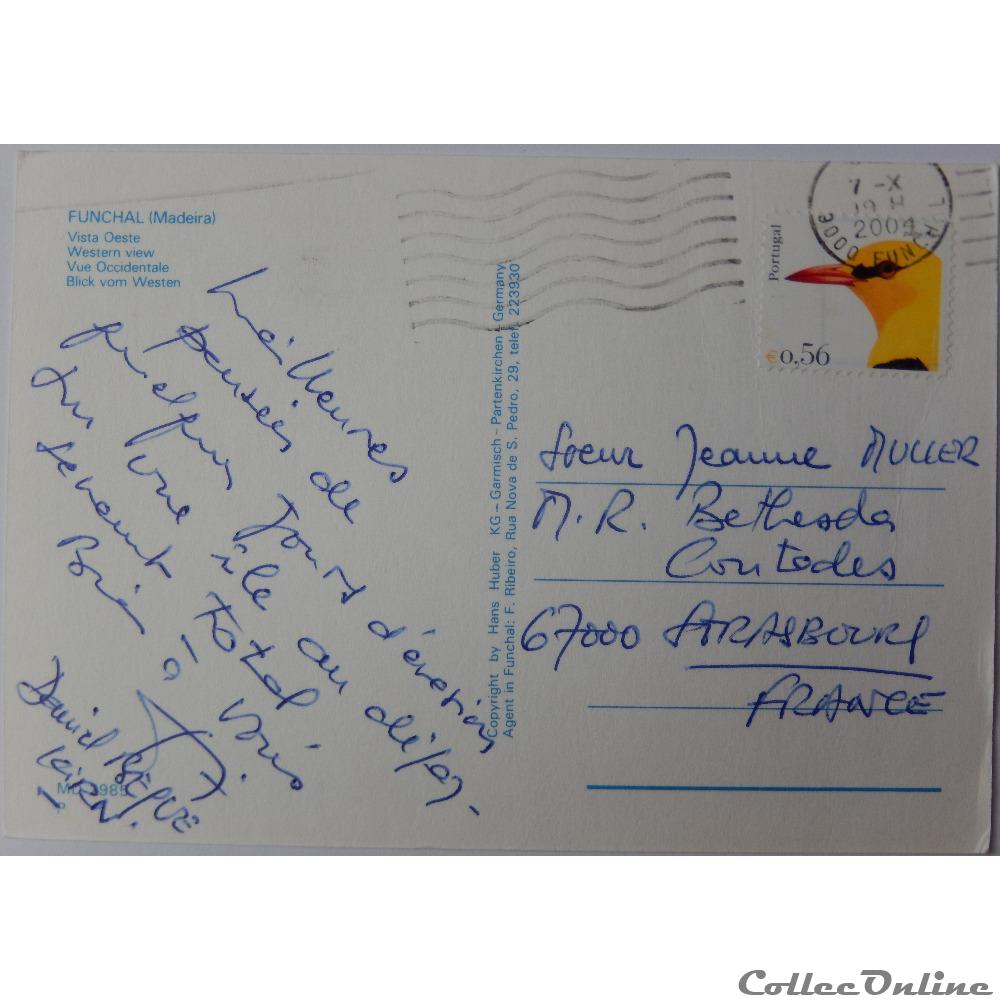 FUNCHAL (Madeira)
Vista Oeste
Western view
Vue Occidentale
Blick vom Westen
Meilleures
pensées de
quelques jours d'évasion
sur une île au dépay-
sement total
Bien à vous
Daniel
KERN.
MD
Copyright by Hans Huber KG - Garmisch - Partenkirchen - Germany
Agent in Funchal: F. Ribeiro, Rua Nova de S. Pedro, 29, telef. 223930
7 - X
19 H
2004
9000 FUNCHAL
Portugal
€0,56
Soeur Jeanne MULLER
M.R. Bethesda
Contades
67000 STRASBOURG
FRANCE
CollecOnline